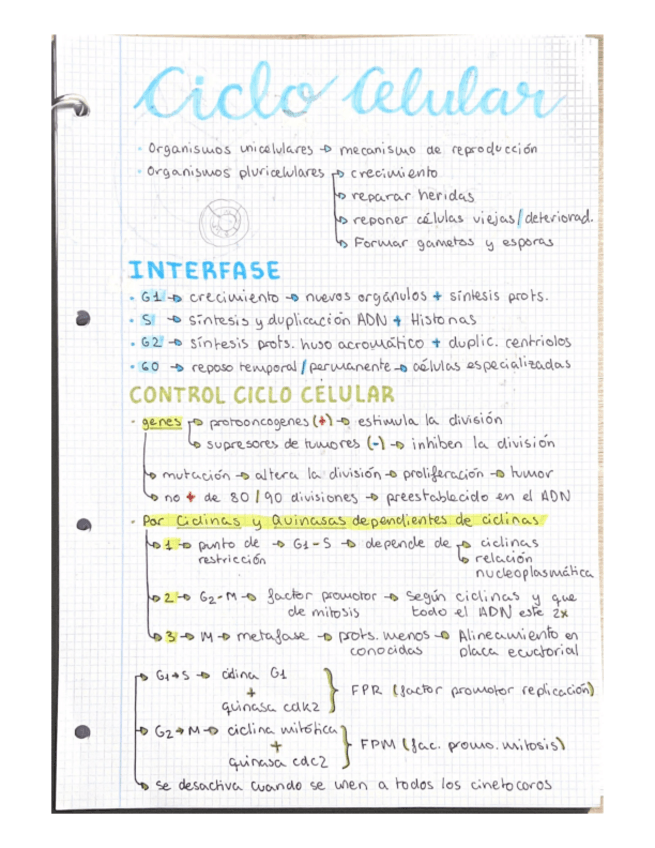 Ciclo Celular
· Organismos unicelulares → mecanismo de reproducción
· Organismos pluricelulares → crecimiento
→ reparar heridas
→ reponer células viejas/deteriorad.
→ Formar gametos y esporas
INTERFASE
· G1 → crecimiento → nuevos orgánulos + síntesis prots.
· S → síntesis y duplicación ADN + Histonas
· G2 → síntesis prots. huso acromático + duplic. centriolos
· G0 → reposo temporal/permanente → células especializadas
CONTROL CICLO CELULAR
· genes → protooncogenes (+) → estimula la división
→ supresores de tumores (-) → inhiben la división
→ mutación → altera la división → proliferación → tumor
→ no + de 80/90 divisiones → preestablecido en el ADN
· Por Ciclinas y Quinasas dependientes de ciclinas
→ 1 → punto de → G1-S → depende de → ciclinas
restricción → relación
nucleoplasmática
→ 2 → G2-M → factor promotor → según ciclinas y que
de mitosis todo el ADN este 2x
→ 3 → M → metafase → prots. menos → Alineamiento en
conocidas placa ecuatorial
→ G1→S → ciclina G1
+
quinasa cdk2 } FPR (factor promotor replicación)
→ G2→M → ciclina mitótica
+
quinasa cdc2 } FPM (fac. promo. mitosis)
→ se desactiva cuando se unen a todos los cinetocoros